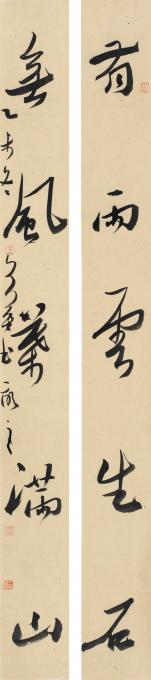 有雨雲生石
無風葉滿山
乙未冬